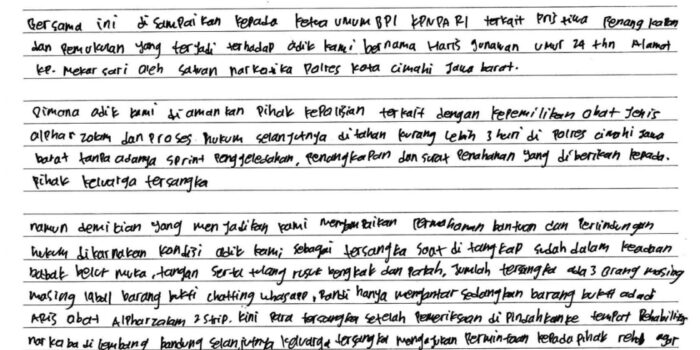 Bersama ini disampaikan kepada ketua umum BPI KPNPA RI terkait pristiwa penangkapan
dan pemukulan yang terjadi terhadap adik kami bernama Haris Junawan umur 24 thn Alamat
kp. Mekar sari oleh satuan narkotika Polres kota cimahi Jawa barat.
Dimana adik kami diamankan pihak kepolisian terkait dengan kepemilikan obat Jenis
alpharzolam dan proses hukum selanjutnya ditahan kurang lebih 3 hari di Polres cimahi Jawa
barat tanpa adanya sprint penggeledahan, penangkapan dan surat penahanan yang diberikan kepada.
pihak keluarga tersangka
namun demikian yang menjadikan kami menyampaikan permohonan bantuan dan Perlindungan
hukum dikarnakan kondisi adik kami sebagai tersangka saat ditangkap sudah dalam keadaan
babak belur muka, tangan serta tulang rusuk bengkak dan Patah, Jumlah tersangka ada 3 orang masing
masing barang bukti chatting whasapp, hanya mengantar sedangkan barang bukti ada di
ARIS obat Alpharzolam 2 strip. Kini Para tersangka setelah Pemeriksaan di Pindahkan ke tempat Rehabilitasi
narkoba di lembang bandung selanjutnya keluarga tersangka mengajukan permintaan kepada pihak rehab agar